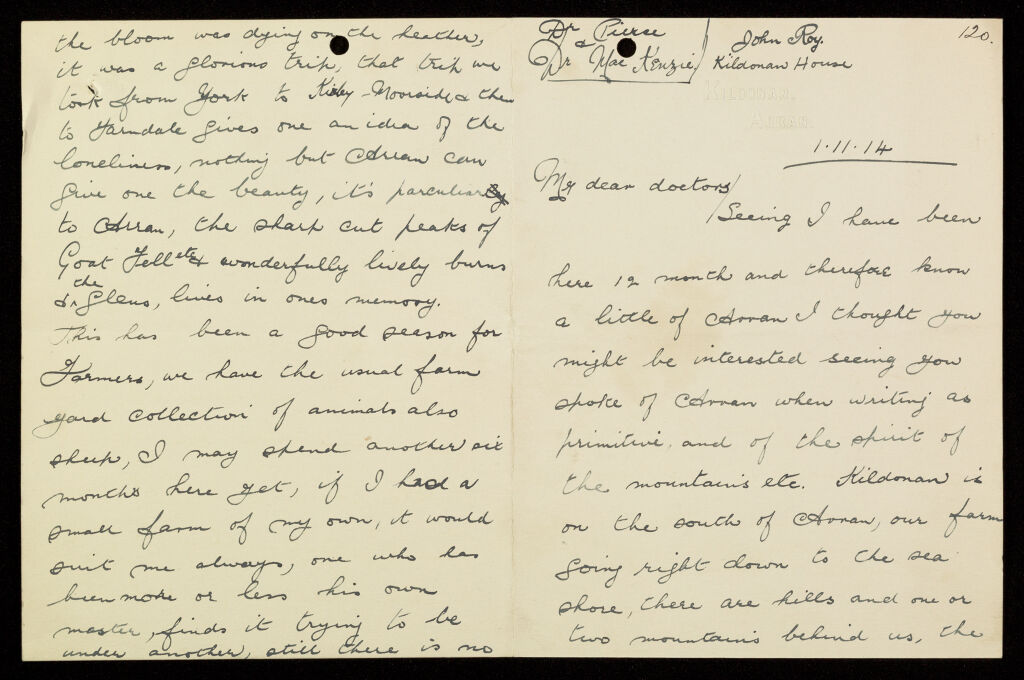 Dr Pierse
&
Dr Mac Kenzie
John Roy.
120.
Kildonan House
KILDONAN.
ARRAN.
1.11.14
My dear doctors/
Seeing I have been
here 12 month and therefore know
a little of Arran I thought you
might be interested seeing you
spoke of Arran when writing as
primitive, and of the spirit of
the mountains etc. Kildonan is
on the south of Arran, our farm
going right down to the sea
shore, there are hills and one or
two mountains behind us, the
the bloom was dying on the heather,
it was a glorious trip, that trip we
took from York to Kirby-Moorside & then
to Farndale gives one an idea of the
loneliness, nothing but Arran can
give one the beauty, it's parculiar
to Arran, the sharp cut peaks of
Goat Fell etc & wonderfully lively burns
& the glens, lives in ones memory.
This has been a good season for
Farmers, we have the usual farm
yard collection of animals also
sheep, I may spend another six
months here yet, if I had a
small farm of my own, it would
suit me always, one who has
been more or less his own
master, finds it trying to be
under another, still there is no